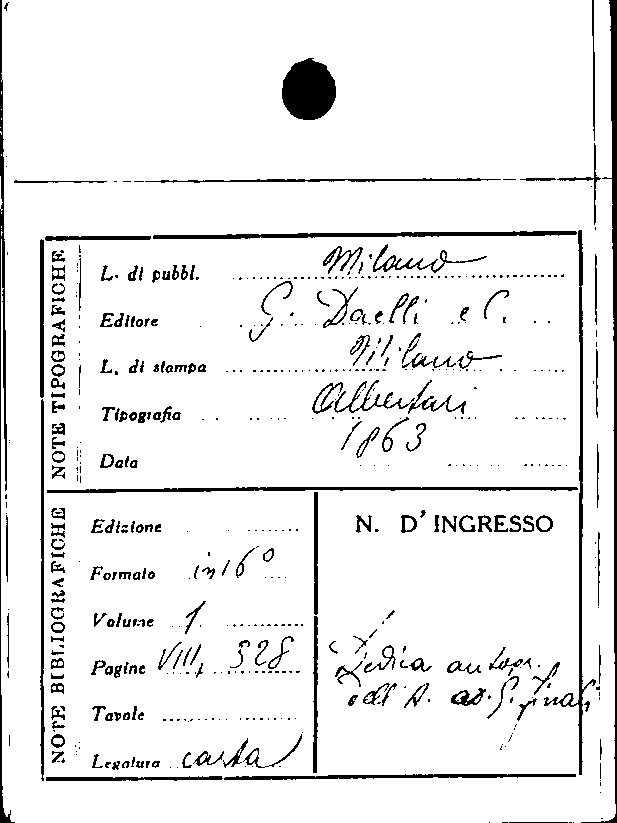 NOTE TIPOGRAFICHE
L. di pubbl. Milano
Editore G. Daelli e C.
L. di stampa Milano
Tipografia Albertari
Data 1863
NOTE BIBLIOGRAFICHE
Edizione
Formato in 16°
Volume 1
Pagine VIII, 328
Tavole
Legatura carta
N. D'INGRESSO
Dedica autogr.
dell'A. a G. Finali